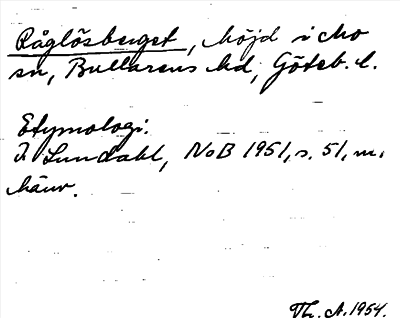 Råglösberget, höjd i Mo
sn, Bullarens hd, Göteb. l.
Etymologi:
I. Lundahl, NoB 1951, s. 51, m.
hänv.
Th. A. 1954.